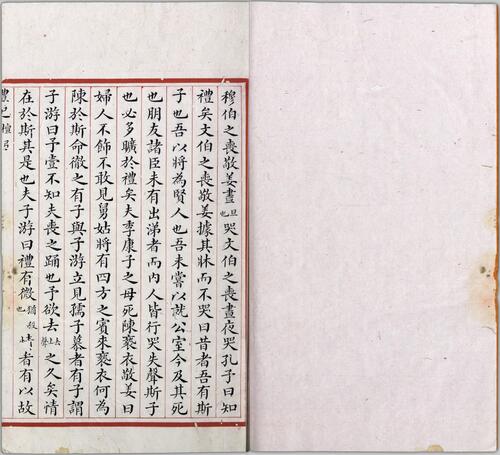 穆伯之喪敬姜晝旦也哭文伯之喪晝夜哭孔子曰知
禮矣文伯之喪敬姜據其牀而不哭曰昔者吾有斯
子也吾以將為賢人也吾未嘗以就公室今及其死
也朋友諸臣未有出涕者而內人皆行哭失聲斯子
也必多曠於禮矣夫季康子之母死陳褻衣敬姜曰
婦人不飾不敢見舅姑將有四方之賓來褻衣何為
陳於斯命徹之有子與子游立見孺子慕者有子謂
子游曰予壹不知夫喪之踊也予欲去去上聲之久矣情
在於斯其是也夫子游曰禮有微猶殺也情者有以故
禮記